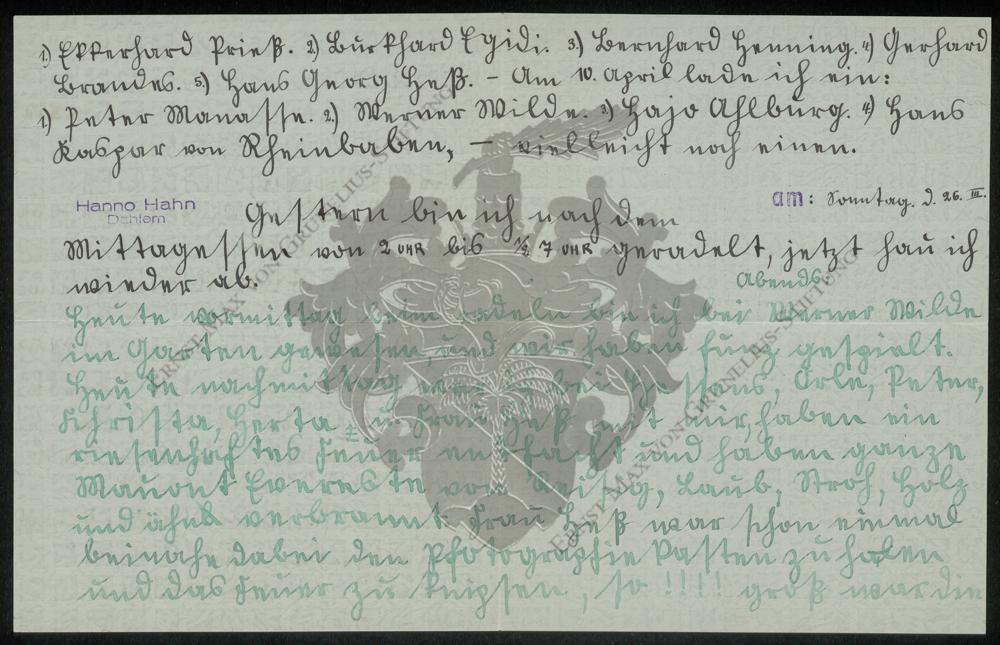 1.) Ekkerhard Prieß. 2.) Burkhard Egidi. 3.) Bernhard Henning. 4.) Gerhard
Brandes. 5.) Hans Georg Heß. – Am 10. April lade ich ein:
1.) Peter Manasse. 2.) Werner Wilde. 3.) Hajo Ahlburg. 4.) Hans
Kaspar von Rheinbaben, – vielleicht noch einen.
Hanno Hahn
Dahlem
am: Sonntag. d. 26. III.
Gestern bin ich nach dem
Mittagessen von 2 UHR bis ½ 7 UHR geradelt, jetzt hau ich
wieder ab.
Abends:
Heute vormittag beim radeln bin ich bei Werner Wilde
im Garten gewesen, und wir haben gespielt.
Heute nachmittag bei Hessens, Erle, Peter,
Christa, Herta u. Frau Heß mit mir, haben ein
riesenhaftes Feuer entfacht und haben ganze
Mount Evereste von Reisig, Laub, Stroh, Holz
und ähnl. verbrannt. Frau Heß war schon einmal
beinahe dabei den Photographiekasten zu holen
und das Feuer zu knipsen, so !!!! groß war die
ERNST-MAX-VON-GRUNELIUS-STIFTUNG
ERNST-MAX-VON-GRUNELIUS-STIFTUNG